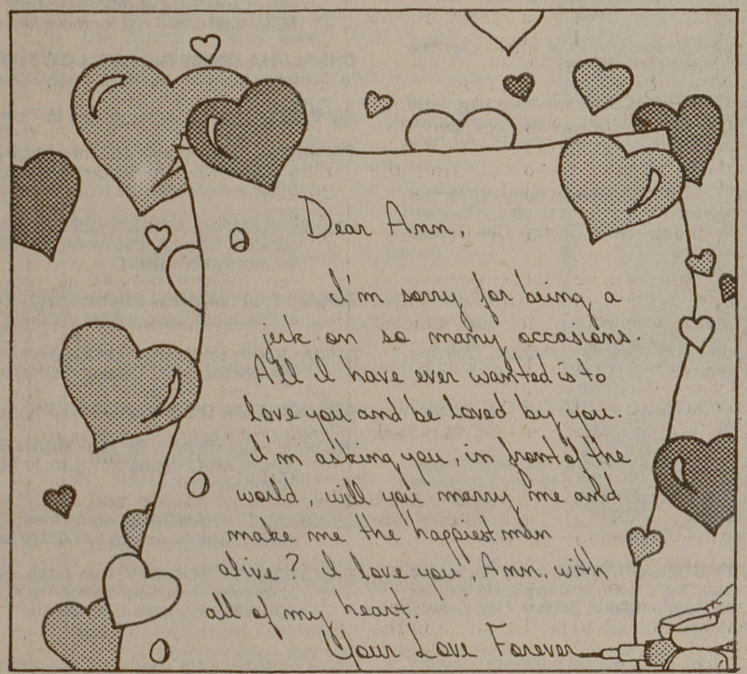 Dear Ann,
I'm sorry for being a
jerk on so many occasions.
All I have ever wanted is to
love you and be loved by you.
I'm asking you, in front of the
world, will you marry me and
make me the happiest man
alive? I love you, Ann. with
all of my heart.
Your Love Forever